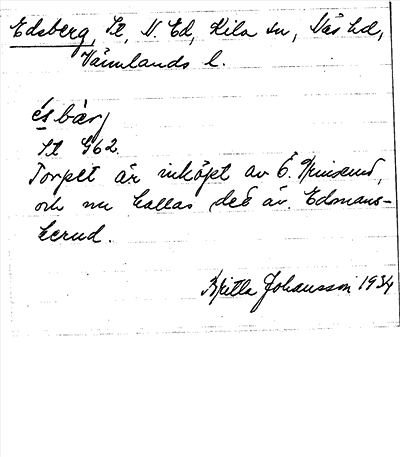 Edsberg, St, N. Ed, Kila sn, Näs hd,
Värmlands l.
és bärj
St G62.
Torpet är inköpt av Ö.
och nu kallas det äv. Edmans-
kerud.
Britta Johansson 1934